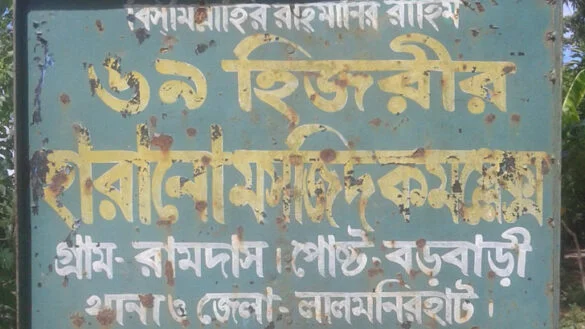 বিসমিল্লাহির রাহমানির রাহিম
৬৯ হিজরীর
হারানো মসজিদ কমপ্লেক্স
গ্রাম- রামদাস। পোষ্ট- বড়বাড়ী
থানা ও জেলা- লালমনিরহাট।